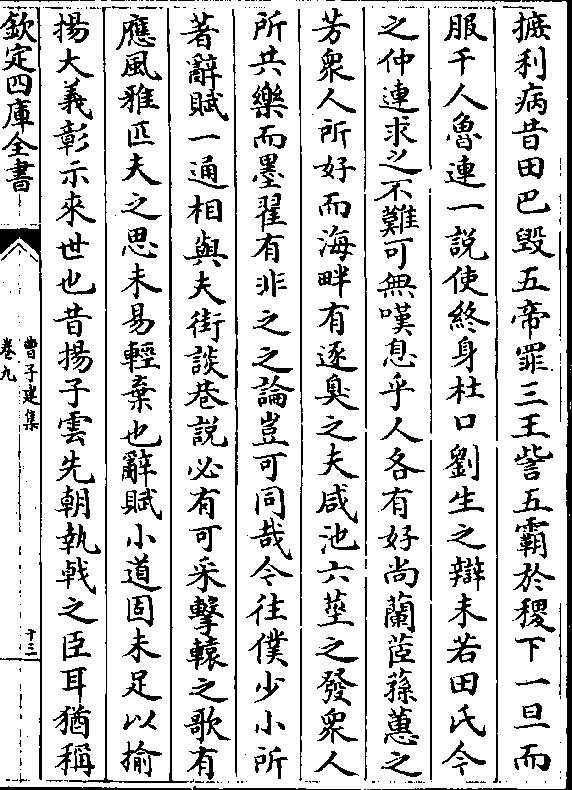 摭利病昔田巴毁五帝罪三王訾五霸於稷下一旦而
服千人魯連一說使終身杜口劉生之辯未若田氏今
之仲連求之不難可無嘆息乎人各有好尚蘭茝蓀蕙之
芳衆人所好而海畔有逐臭之夫咸池六莖之發衆人
所共樂而墨翟有非之之論豈可同哉今往僕少小所
著辭賦一通相與夫街談巷說必有可采擊轅之歌有
應風雅匹夫之思未易輕棄也辭賦小道固未足以揄
揚大義彰示來世也昔揚子雲先朝執戟之臣耳猶稱
欽定四庫全書
曹子建集
卷九
十三